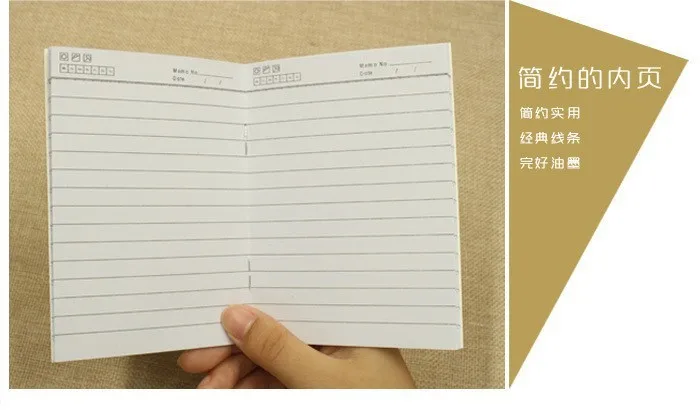 Memo No.
Date / /
Memo No.
Date / /
简约的内页
简约实用
经典线条
完好油墨